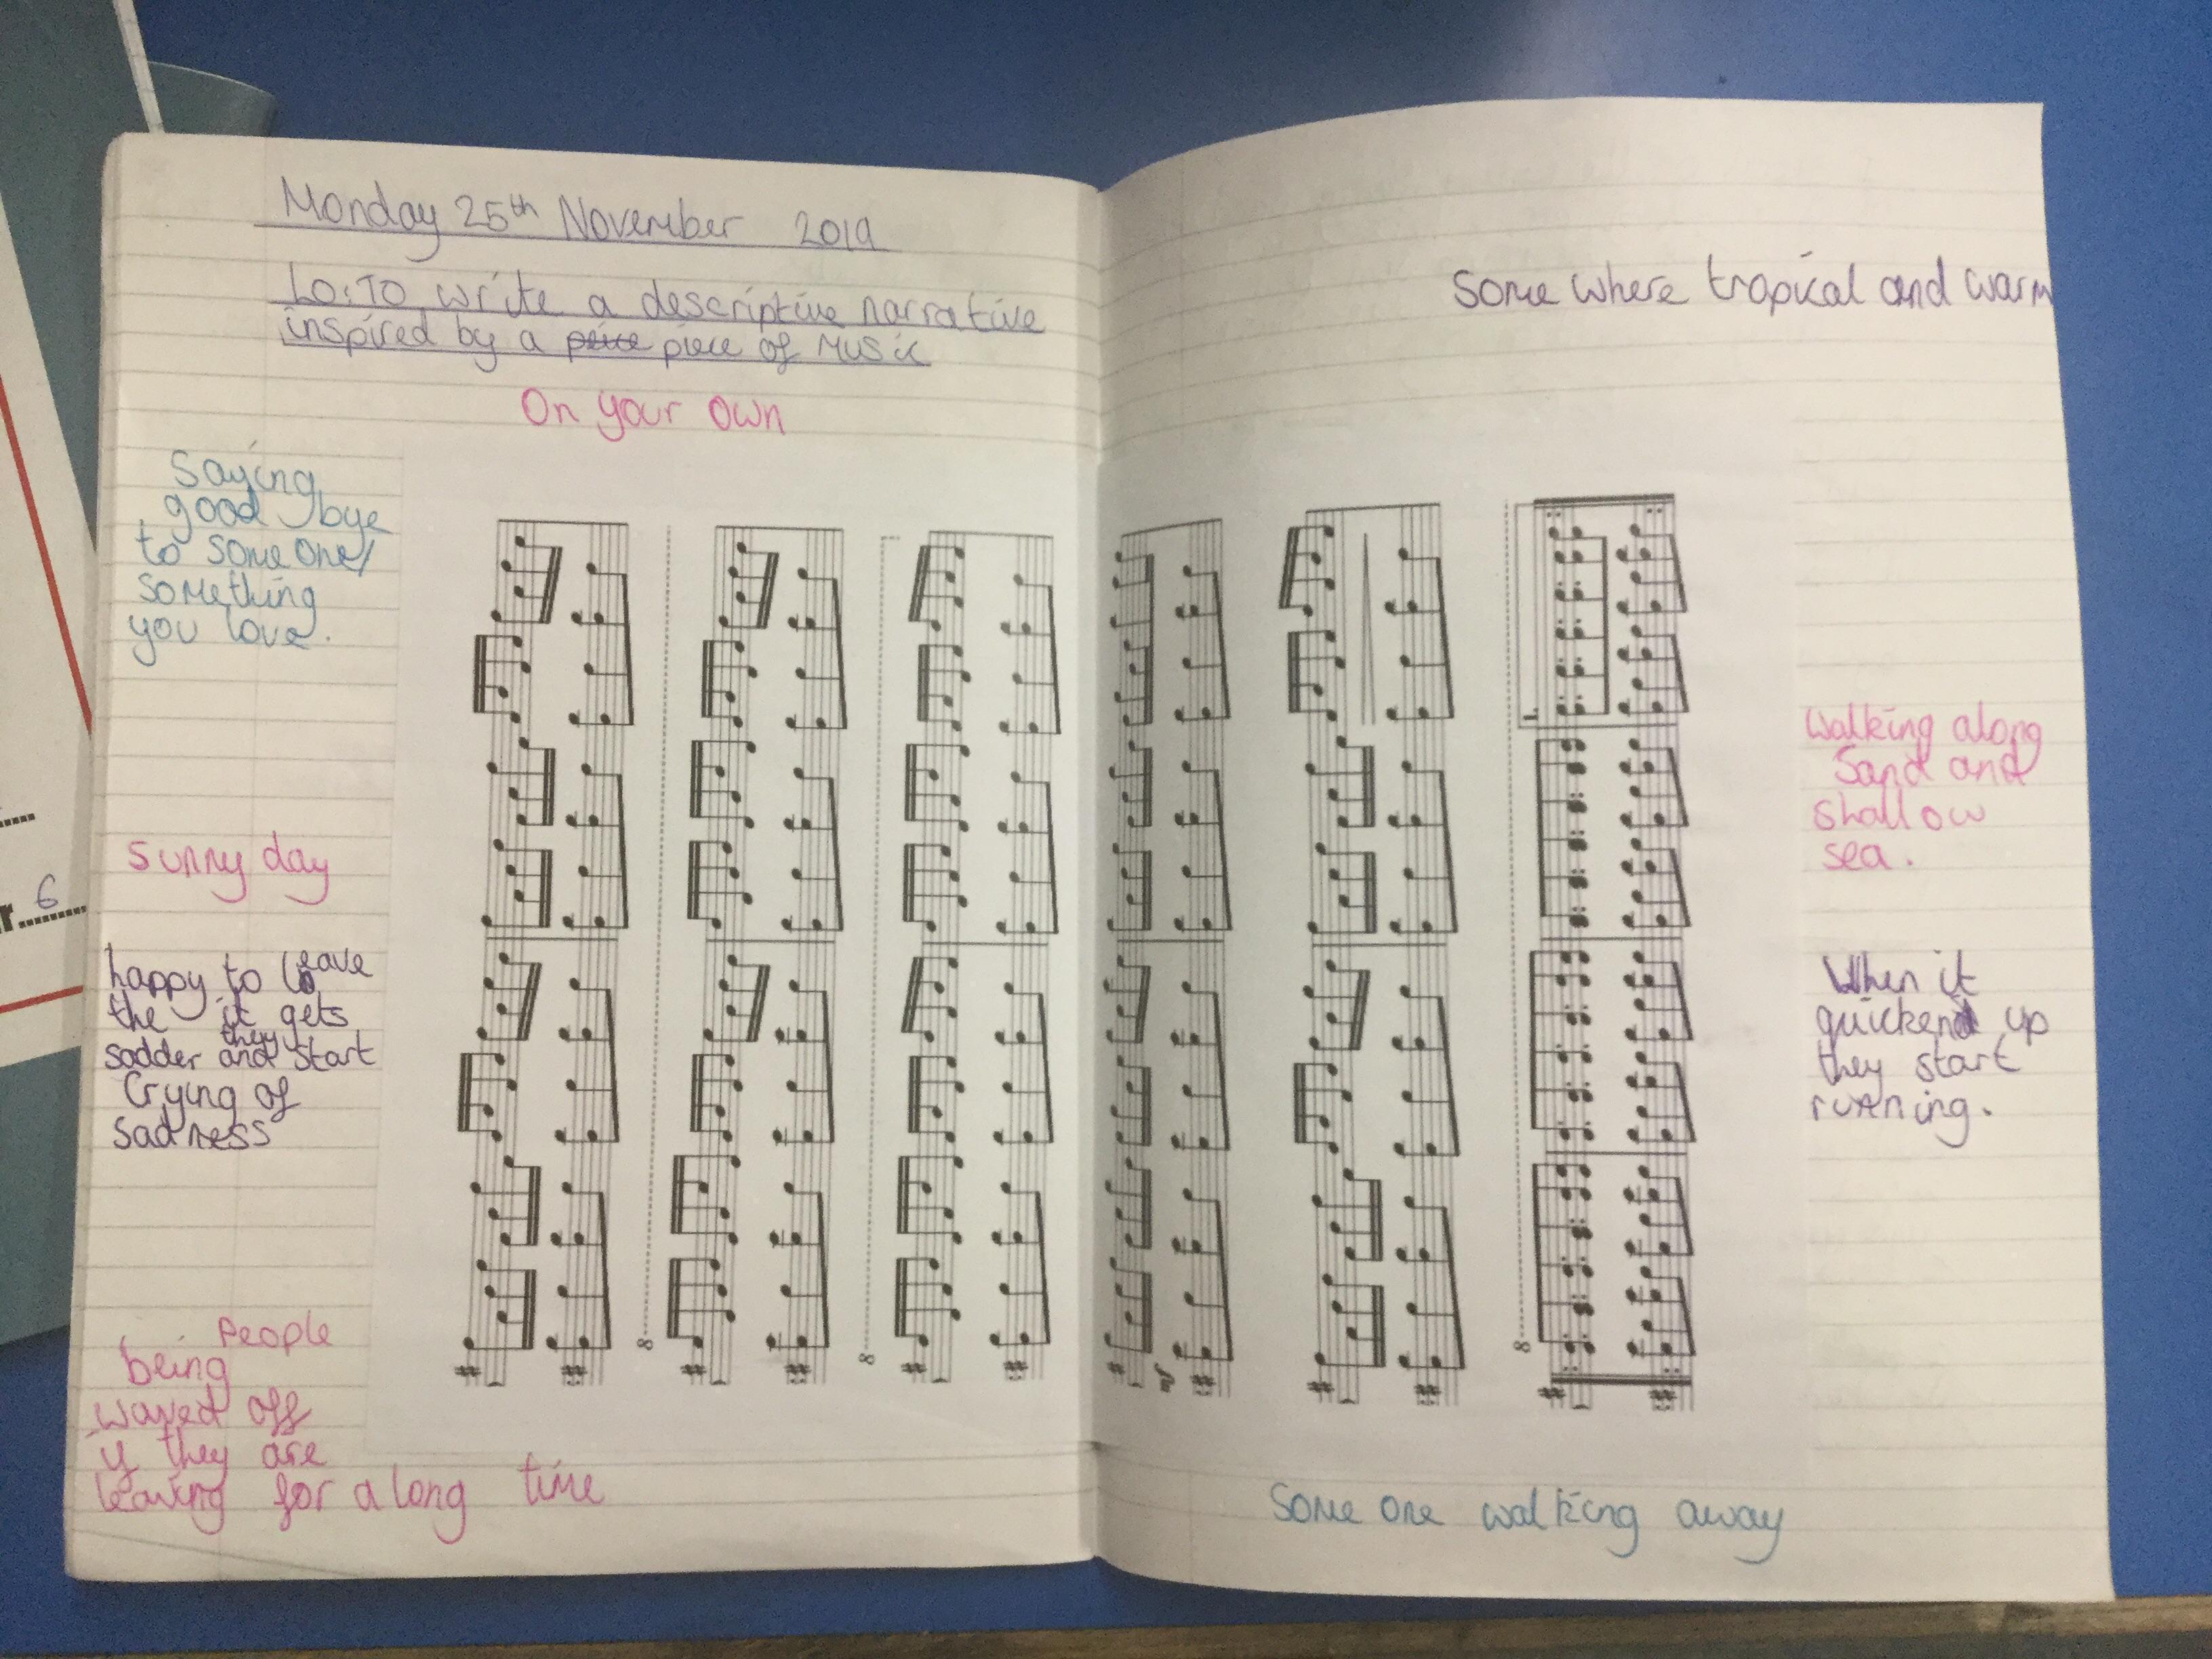 Monday 25th November 2019
LO: TO write a descriptive narrative
inspired by a peice piece of Music
On your own
Saying
good bye
to some one/
something
you love.
Sunny day
happy to leave
the it gets
sadder and they start
Crying of
Sadness
People
being
waved off
if they are
leaving for a long time
Some where tropical and warm
Walking along
Sand and
shallow
sea.
When it
quickend up
they start
running.
Some one walking away
r 6
8
8
8
mf
1.